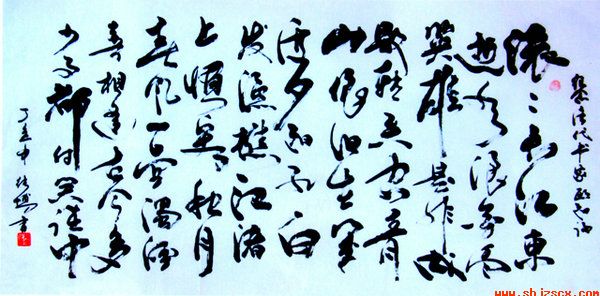 滚〻长江东
逝水浪花淘尽
英雄是非成
败转头空青
山依旧在几
度夕阳红白
发渔樵江渚
上惯看秋月
春风一壶浊酒
喜相逢古今多
少事都付笑谈中
丁亥年 书
www.shjzscx.com